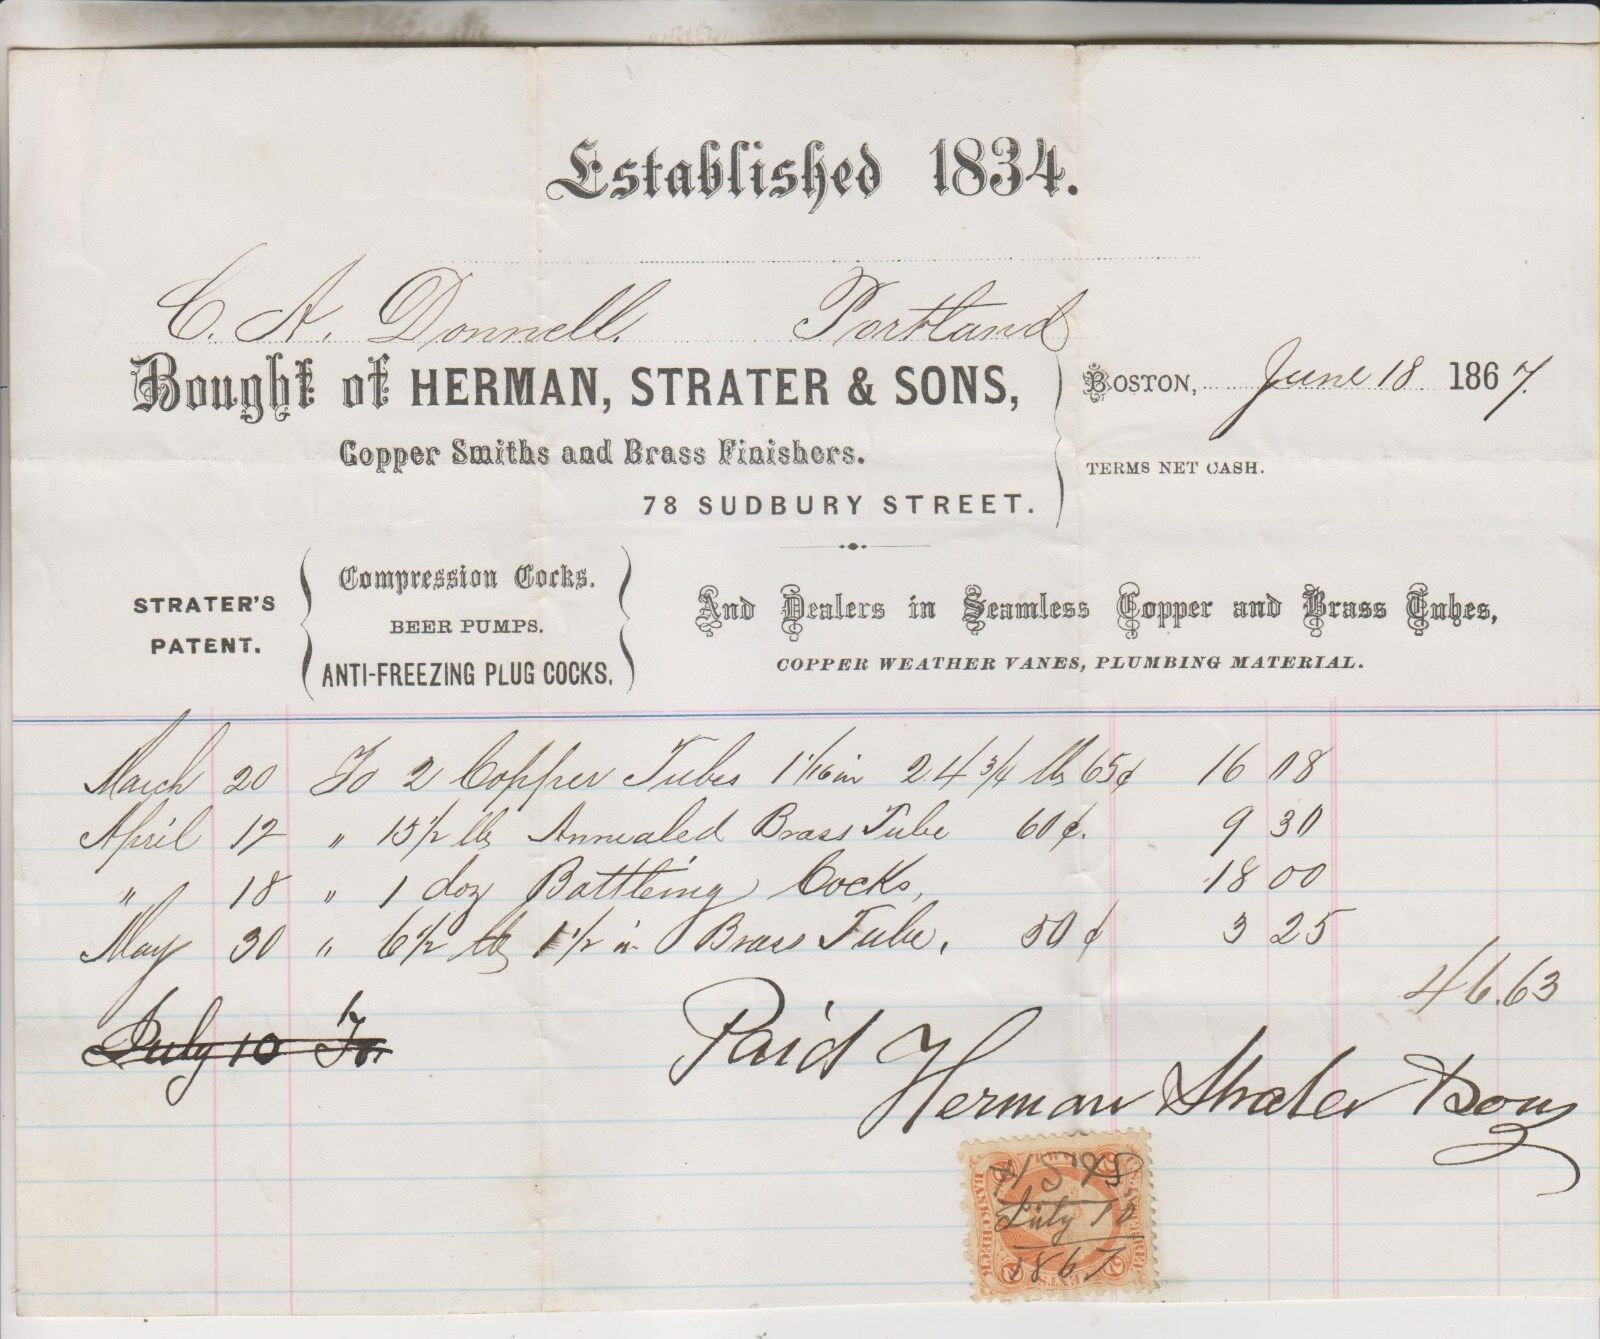 Established 1834.
C. A. Donnell. Portland
Bought of HERMAN, STRATER & SONS,
BOSTON, June 18 1867.
Copper Smiths and Brass Finishers.
TERMS NET CASH.
78 SUDBURY STREET.
STRATER'S PATENT.
Compression Cocks.
BEER PUMPS.
ANTI-FREEZING PLUG COCKS.
And Dealers in Seamless Copper and Brass Tubes,
COPPER WEATHER VANES, PLUMBING MATERIAL.
March 20 To 2 Copper Tubes 1 1/16 in 24 3/4 lb 65¢ 16 08
April 12 " 15 1/2 lbs Annealed Brass Tube 60¢. 9 30
" 18 " 1 doz Bottleing Cocks, 18 00
May 30 " 6 1/2 lbs 1 1/2 in Brass Tube. 50¢ 3 25
46.63
July 10 To
Paid Herman Strater & Sons
H S & S
July 10
1867
BANK CHECK